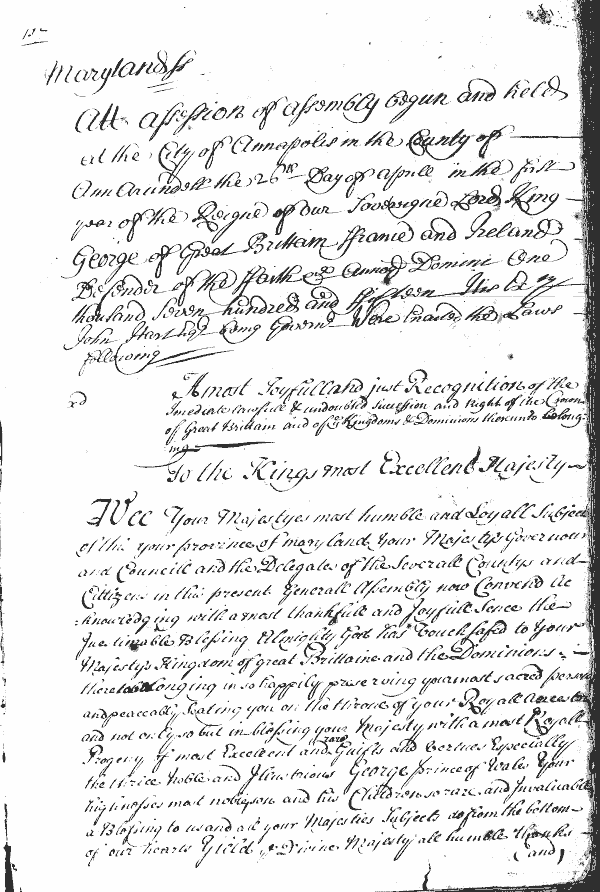 Maryland ss
Att a Session of Assembly begun and held
at the City of Annapolis in the County of
Ann Arundell the 26th Day of Aprill in the first
year of the Reigne of our Sovereigne Lord King
George of Great Brittain ffrance and Ireland
Defender of the ffaith &c Annoq Domini One
thousand Seven hundred and fifteen
John Hart Esqr being Governr Were Enacted the Laws
following
A most Joyfull and just Recognition of the
Imediate lawfull & undoubted Succession and Right of the Crown
of Great Brittain and of ye Kingdoms & Dominions thereunto belong-
ing
To the Kings most Excellent Majesty
Wee Your Majestyes most humble and Loyall Subjects
of this your province of maryland Your Majestys Governour
and Councill and the Delegates of the Severall Countys and
Cittizens in this present Generall Assembly now Convened Ac
=knowledging with a most thankfull and Joyfull Sence the
Inestimable Blessing Almighty God has Vouchsafed to Your
Majestys Kingdom of great Brittaine and the Dominions
thereto belonging in so happily preserving your most sacred person
and peaceably Seating you on the throne of your Royall Ancestors
and not only so but in blessing your Majesty with a most Royall
Progeny of most Excellent and rare Guifts and Vertues Especially
the thrice Noble and Illustrious George prince of Wales Your
highnesses most noble son and his Children so rare and Invaluable
a Blessing to us and all your Majesties Subjects do from the bottom
of our hearts Yield ye Divine Majesty all humble thanks
and